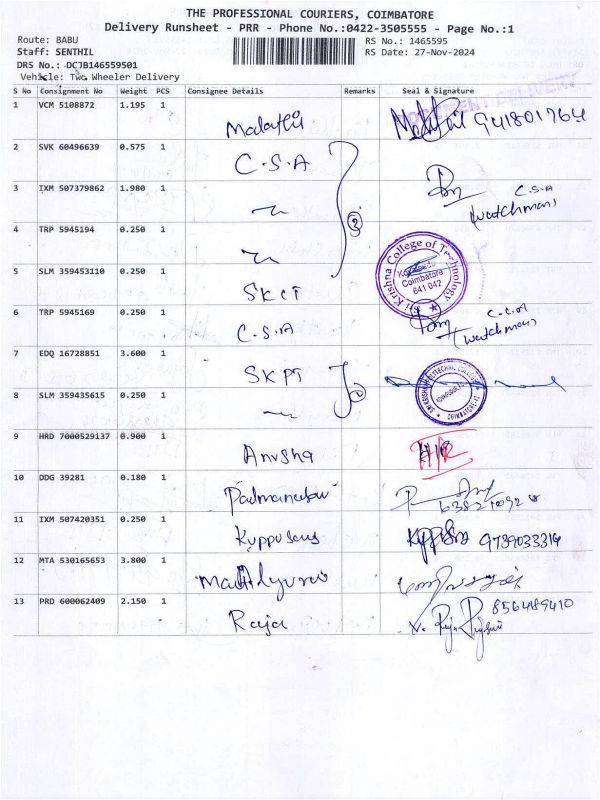 THE PROFESSIONAL COURIERS, COIMBATORE
Delivery Runsheet - PRR - Phone No.:0422-3505555 - Page No.:1
Route: BABU
RS No.: 1465595
Staff: SENTHIL
RS Date: 27-Nov-2024
DRS No.: DCJB146559501
Vehicle: Two Wheeler Delivery
S No Consignment No Weight PCS Consignee Details Remarks Seal & Signature
1 VCM 5108872 1.195 1 Malathi
2 SVK 60496639 0.575 1 C.S.A
3 IXM 507379862 1.980 1 C.S.A (watchman)
4 TRP 5945194 0.250 1
Krishna College of Technology
Coimbatore
641 042
5 SLM 359453110 0.250 1 SKCT
6 TRP 5945169 0.250 1 C.S.A (watchman)
7 EDQ 16728851 3.600 1 SKPT
8 SLM 359435615 0.250 1
9 HRD 7000529137 0.900 1 Anusha
10 DDG 39281 0.180 1
11 IXM 507420351 0.250 1 9739033314
12 MTA 530165653 3.800 1
13 PRD 600062409 2.150 1 Raja 856489410